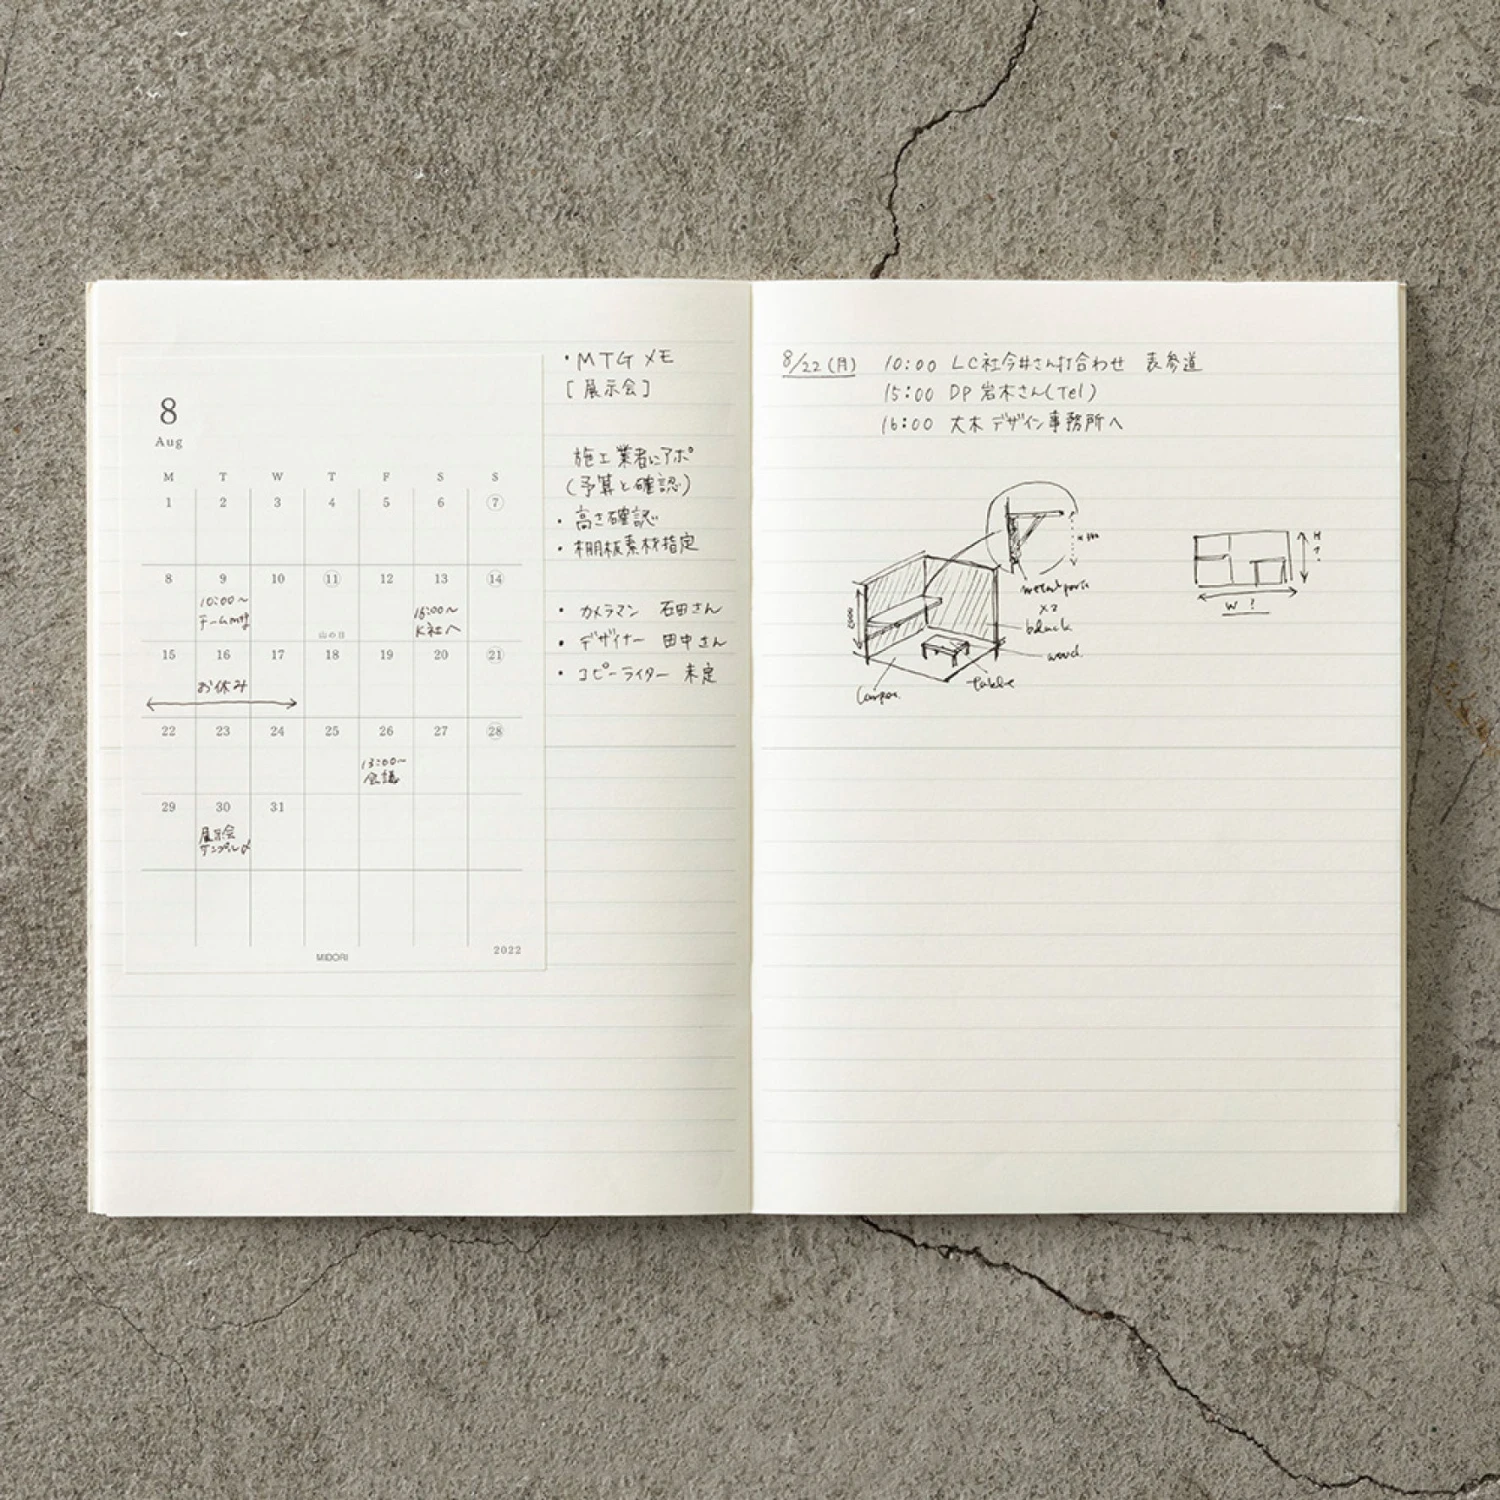 8
Aug
M T W T F S S
1 2 3 4 5 6 7
8 9 10 11 12 13 14
10:00〜
チームmtg
山の日
15:00〜
K社へ
15 16 17 18 19 20 21
お休み
22 23 24 25 26 27 28
13:00〜
会議
29 30 31
展示会
サンプル〆
MIDORI
2022
・MTGメモ
[展示会]
施工業者にアポ
(予算と確認)
・高さ確認
・棚板素材指定
・カメラマン 石田さん
・デザイナー 田中さん
・コピーライター 未定
8/22(月) 10:00 LC社今井さん打合わせ 表参道
15:00 DP 岩木さん(Tel)
16:00 大木デザイン事務所へ
metal
x2
black
wood
table
H?
W?